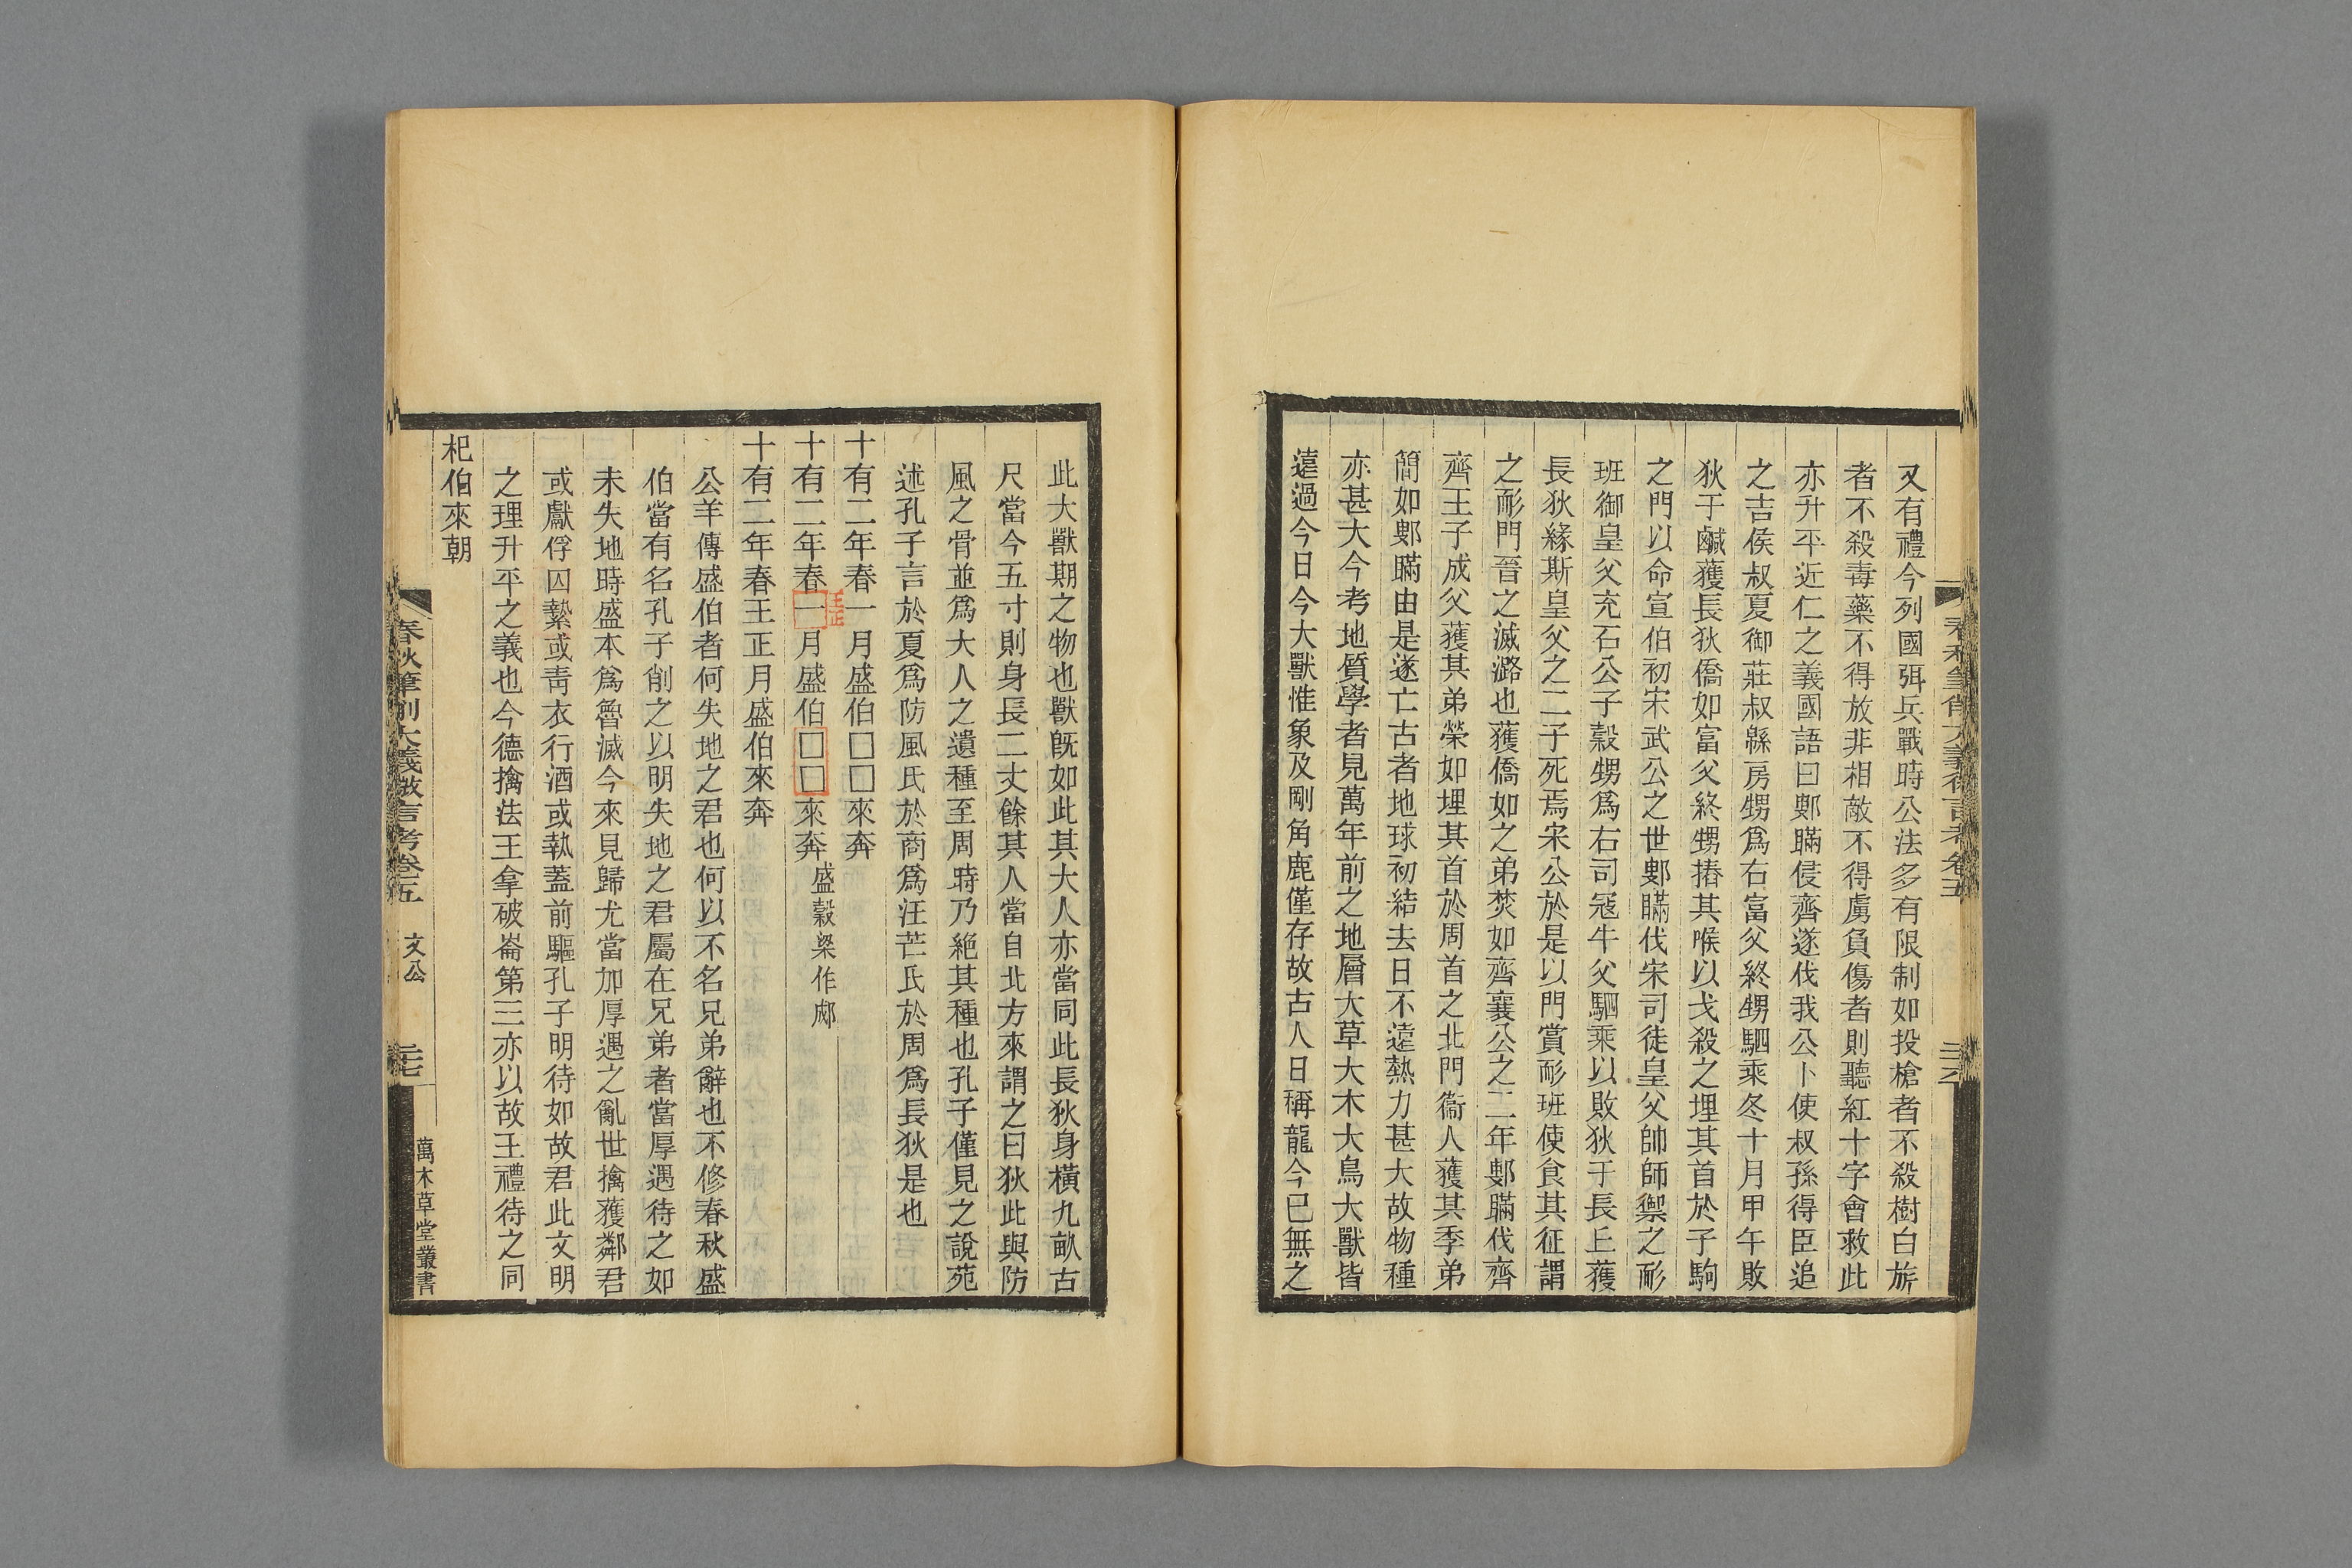 又有禮今列國弭兵戰時公法多有限制如投槍者不殺樹白旂
者不殺毒藥不得放非相敵不得虜負傷者則聽紅十字會救此
亦升平近仁之義國語曰鄋瞞侵齊遂伐我公卜使叔孫得臣追
之吉侯叔夏御莊叔緜房甥爲右富父終甥駟乘冬十月甲午敗
狄于鹹獲長狄僑如富父終甥摏其喉以戈殺之埋其首於子駒
之門以命宣伯初宋武公之世鄋瞞伐宋司徒皇父帥師禦之耏
班御皇父充石公子穀甥爲右司寇牛父駟乘以敗狄于長丘獲
長狄緣斯皇父之二子死焉宋公於是以門賞耏班使食其征謂
之耏門晉之滅潞也獲僑如之弟焚如齊襄公之二年鄋瞞伐齊
齊王子成父獲其弟榮如埋其首於周首之北門衞人獲其季弟
簡如鄋瞞由是遂亡古者地球初結去日不遠熱力甚大故物種
亦甚大今考地質學者見萬年前之地層大草大木大鳥大獸皆
遠過今日今大獸惟象及剛角鹿僅存故古人日稱龍今已無之
春秋筆削大義微言考卷五
二六
此大獸期之物也獸旣如此其大人亦當同此長狄身橫九畝古
尺當今五寸則身長二丈餘其人當自北方來謂之曰狄此與防
風之骨並爲大人之遺種至周時乃絶其種也孔子僅見之說苑
述孔子言於夏爲防風氏於商爲汪芒氏於周爲長狄是也
十有二年春一月盛伯□□來奔
十有二年春一月盛伯□□來奔盛穀梁作郕
王正
十有二年春王正月盛伯來奔
公羊傳盛伯者何失地之君也何以不名兄弟辭也不修春秋盛
伯當有名孔子削之以明失地之君屬在兄弟者當厚遇待之如
未失地時盛本爲魯滅今來見歸尤當加厚遇之亂世擒獲鄰君
或獻俘囚縶或靑衣行酒或執蓋前驅孔子明待如故君此文明
之理升平之義也今德擒法王拿破崙第三亦以故王禮待之同
杞伯來朝
春秋筆削大義微言考卷五
文公
二七
萬木草堂叢書